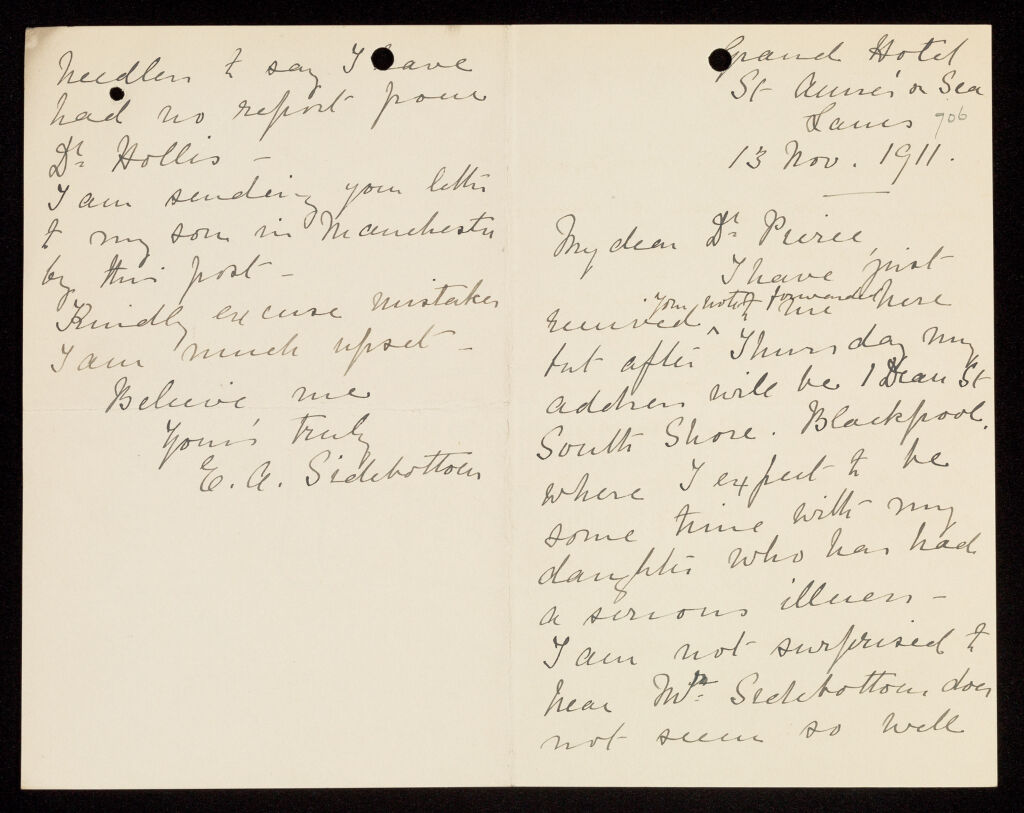 Grand Hotel
St Anne's on Sea
Lancs 906
13 Nov. 1911.
My dear Dr Pierce,
I have just
received your note forwarded to me here
but after Thursday my
address will be 1 Dean St
South Shore. Blackpool.
where I expect to be
some time with my
daughter who has had
a serious illness –
I am not surprised to
hear Mr Sidebottom does
not seem so well
Needless to say I have
had no report from
Dr Hollis –
I am sending your letter
to my son in Manchester
by this post –
Kindly excuse mistakes
I am much upset –
Believe me
Yours truly
E. A. Sidebottom